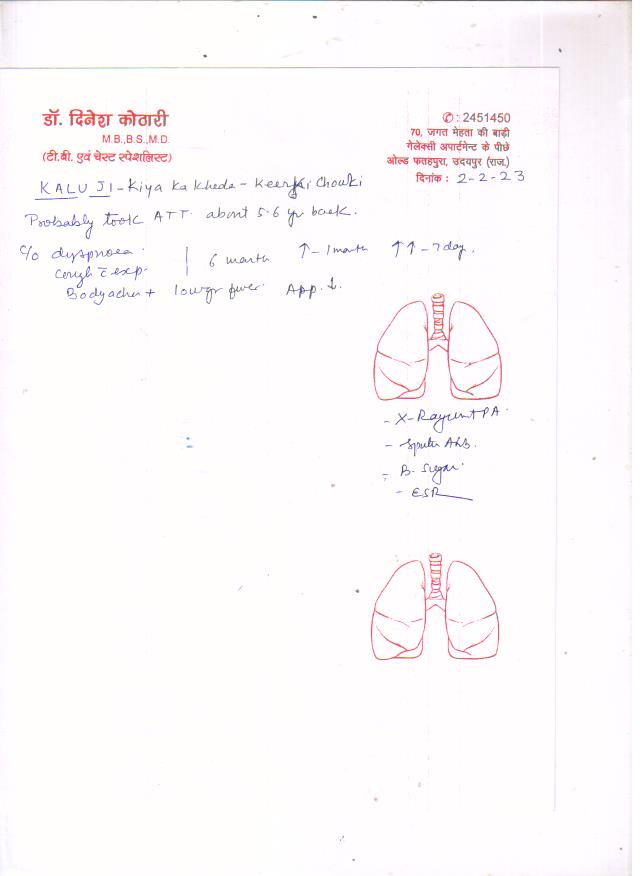 डॉ. दिनेश कोठारी
M.B.,B.S.,M.D.
(टी.बी. एवं चेस्ट स्पेशलिस्ट)
✆ : 2451450
70, जगत मेहता की बाड़ी
गेलेक्सी अपार्टमेन्ट के पीछे
ओल्ड फतहपुरा, उदयपुर (राज.)
दिनांक : 2-2-23
KALU JI - Kiya Ka Kheda - Chowki
Probably took ATT about 5-6 yr back.
C/o dyspnoea 6 month ↑ - 1 month ↑↑ - 7 day.
Cough c̄ exp.
Bodyaches + low gr fever. App. ↓.
- X-Ray PA.
- Sputum AFB.
- B. Sugar.
- ESR